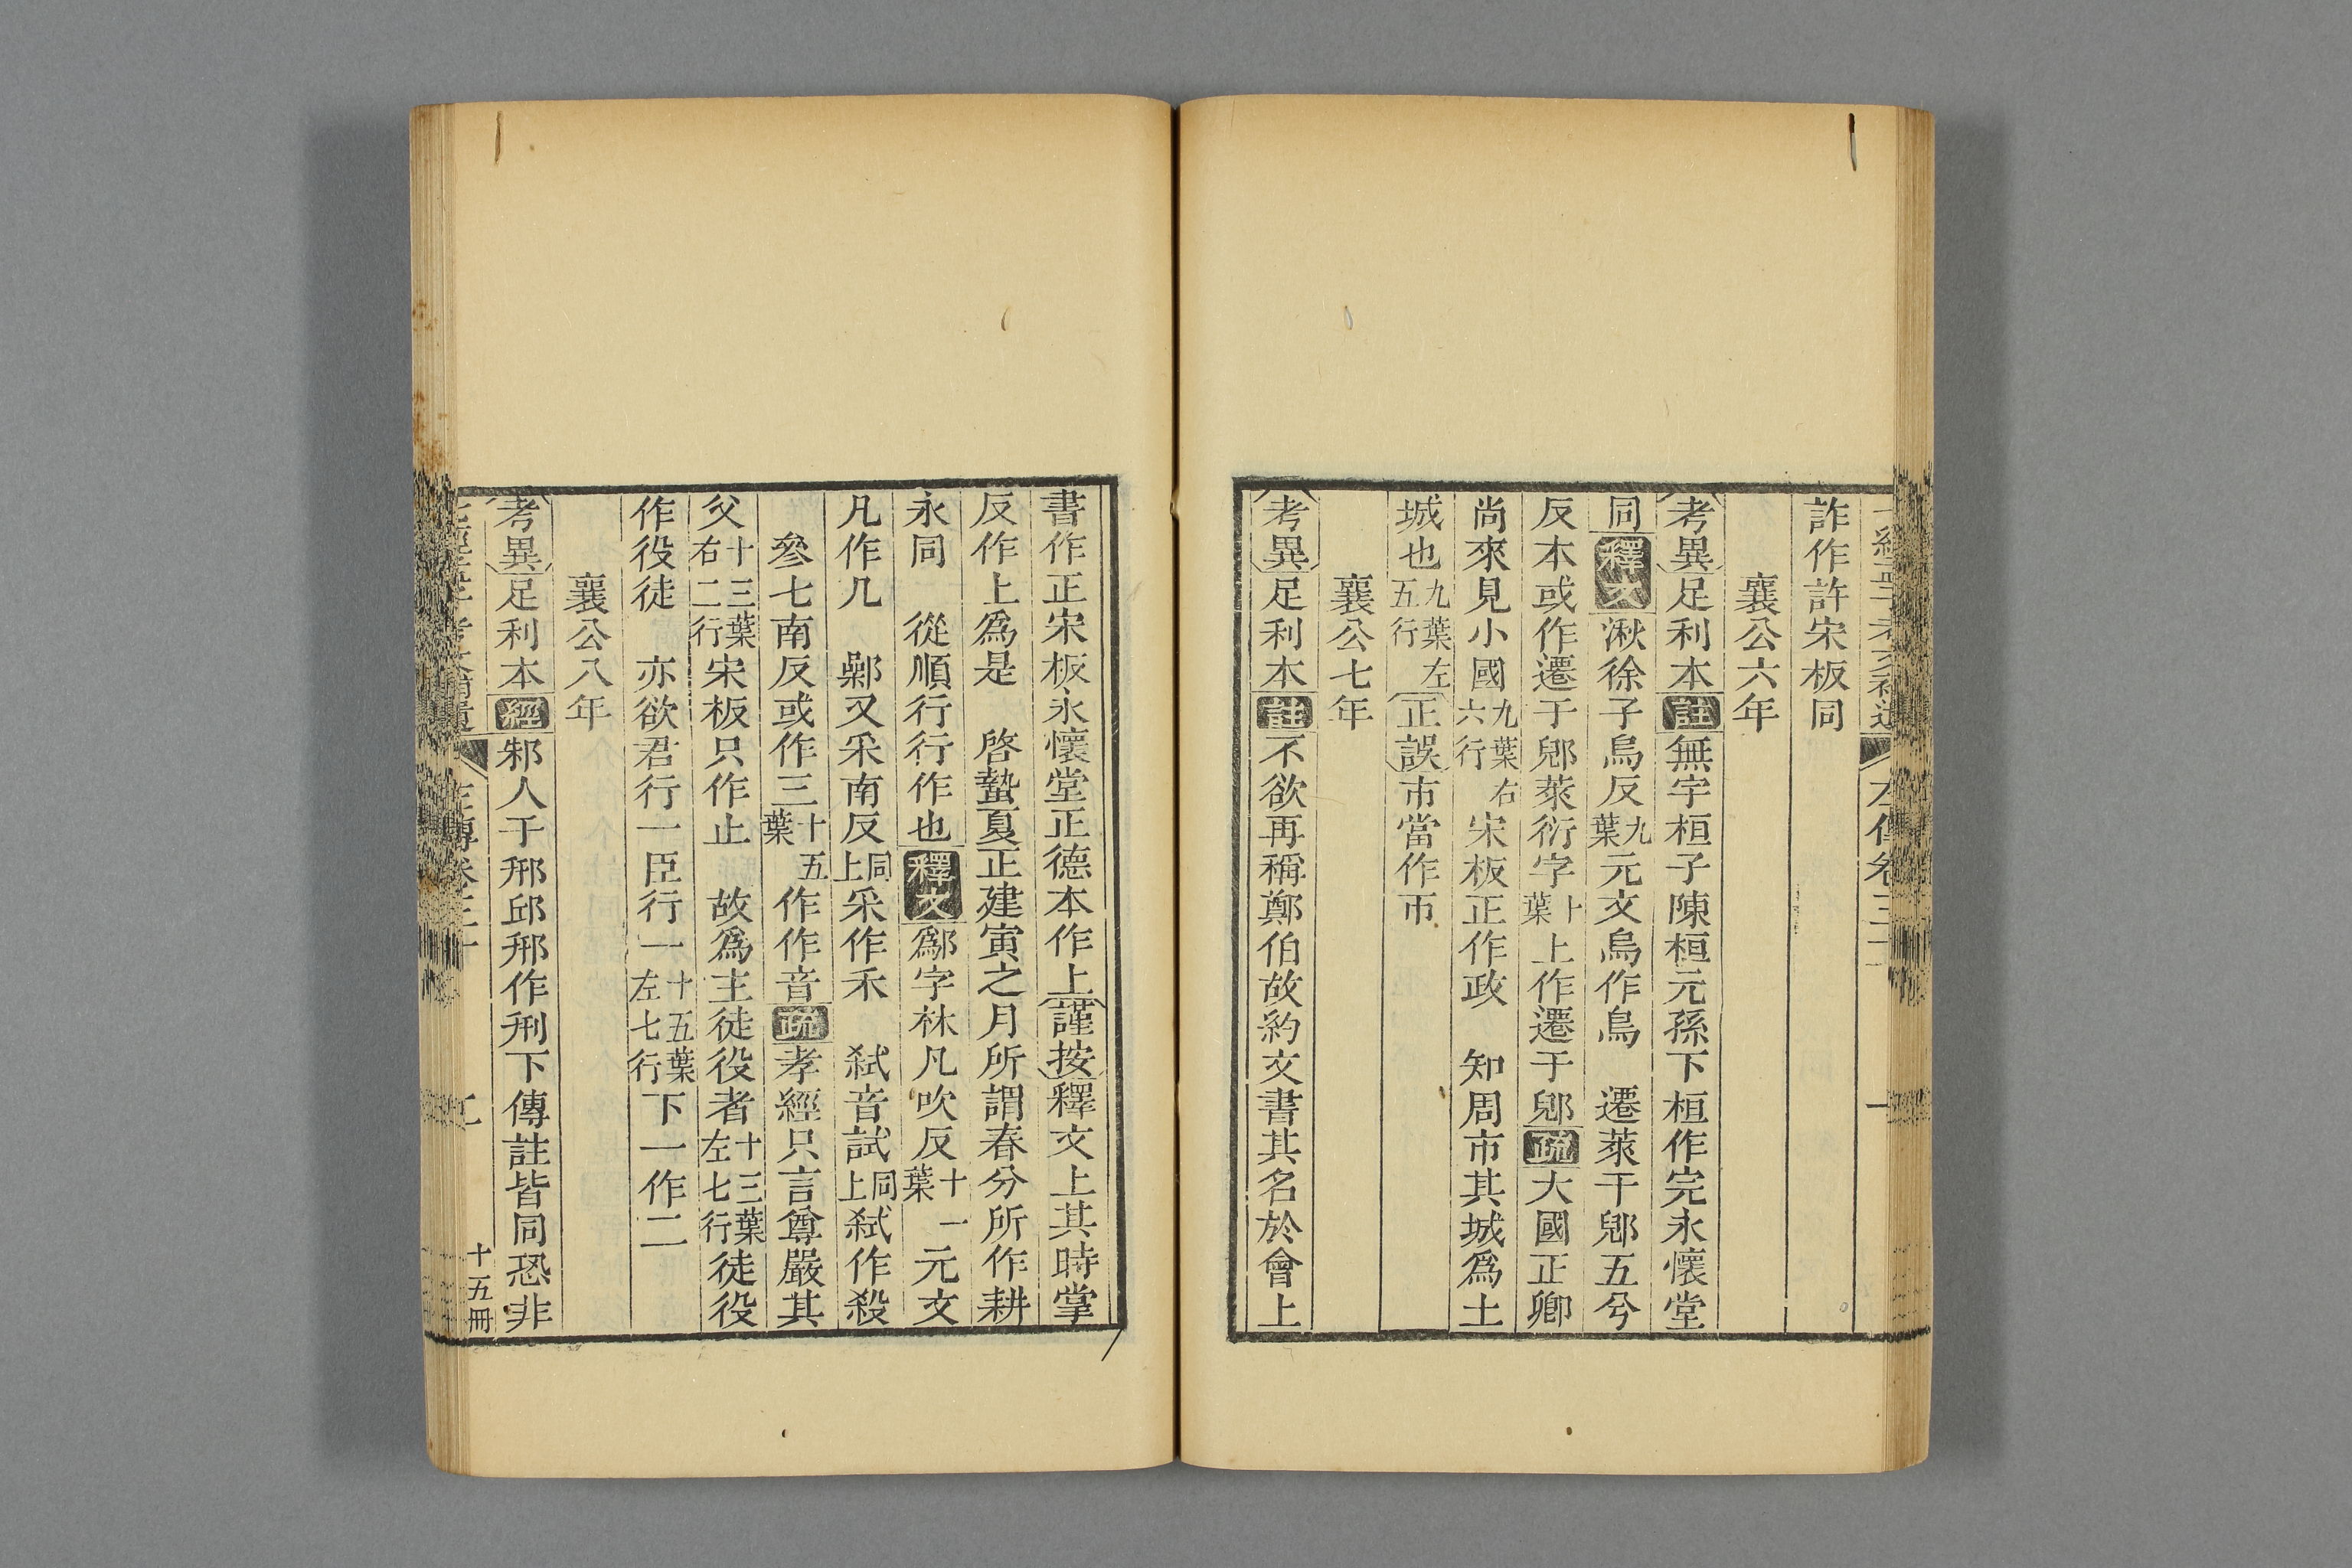 詐作許宋板同
襄公六年
考異足利本註無宇桓子陳桓元孫下桓作完永懷堂
同釋文湫徐子鳥反九葉元文鳥作烏　遷萊于郳五兮
反本或作遷于郳萊衍字十葉上作遷于郳疏大國正卿
尚來見小國九葉右六行宋板正作政　知周市其城爲土
城也九葉左五行正誤市當作帀
襄公七年
考異足利本註不欲再稱鄭伯故約文書其名於會上
書作正宋板永懷堂正德本作上謹按釋文上其時掌
反作上爲是　啓蟄夏正建寅之月所謂春分所作耕
永同　從順行行作也釋文鄬字林凡吹反十一葉元文
凡作几　鄵又采南反同上采作禾　弒音試同上弒作殺
參七南反或作三十五葉作作音疏孝經只言尊嚴其
父十三葉右二行宋板只作止　故爲主徒役者十三葉左七行徒役
作役徒　亦欲君行一臣行一十五葉左七行下一作二
襄公八年
考異足利本經邾人于邢邱邢作刑下傳註皆同恐非
十五冊